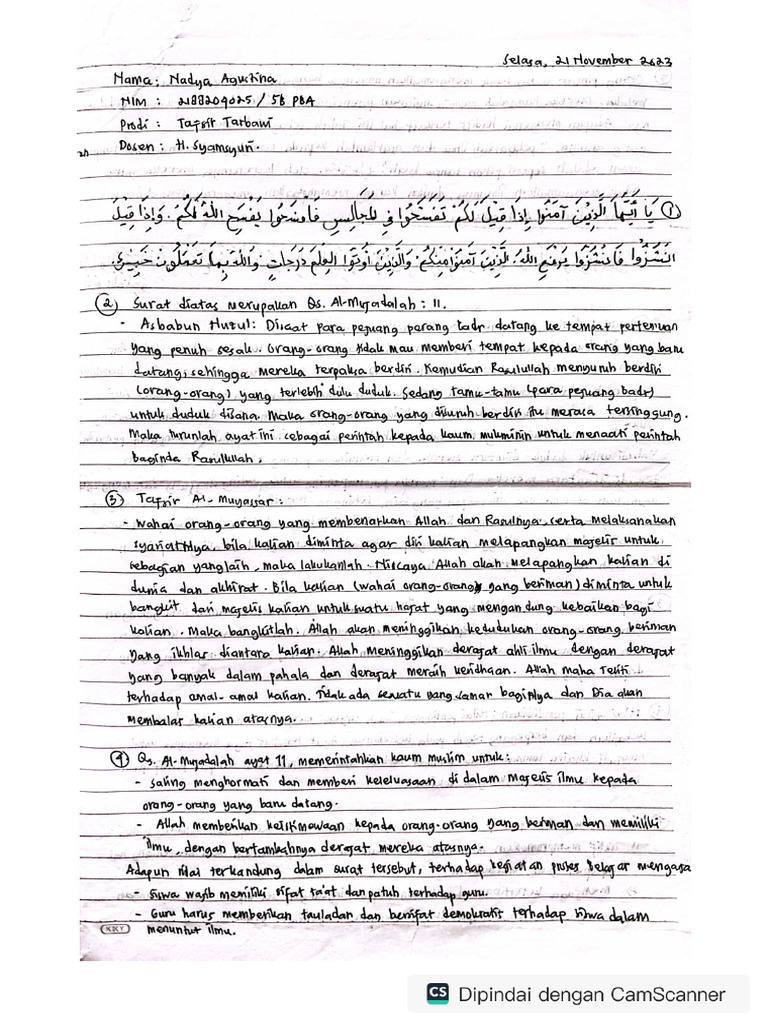 Selasa, 21 November 2023
Nama : Nadya Agustina
NIM : 2188204025 / 5B PBA
Prodi : Tafsir Tarbawi
Dosen : H. Syamsyuri.
① يَا أَيُّهَا الَّذِيْنَ آمَنُوا إِذَا قِيْلَ لَكُمْ تَفَسَّحُوا فِي المَجَالِسِ فَافْسَحُوا يَفْسَحِ اللهُ لَكُمْ وَإِذَا قِيْلَ
انْشُزُوا فَانْشُزُوا يَرْفَعِ اللهُ الَّذِيْنَ آمَنُوا مِنْكُمْ وَالَّذِيْنَ أُوتُوا العِلْمَ دَرَجَاتٍ وَاللهُ بِمَا تَعْمَلُونَ خَبِيْرٌ.
② Surat diatas merupakan Qs. Al-Mujadalah : 11.
- Asbabun Nuzul : Disaat para pejuang perang badr datang ke tempat pertemuan
yang penuh sesak. Orang-orang tidak mau memberi tempat kepada orang yang baru
datang, sehingga mereka terpaksa berdiri. Kemudian Rasulullah menyuruh berdiri
(orang-orang) yang terlebih dulu duduk. Sedang tamu-tamu (para pejuang badr)
untuk duduk disana. Maka orang-orang yang disuruh berdiri itu merasa tersinggung.
Maka turunlah ayat ini sebagai perintah kepada kaum mukminin untuk menaati perintah
baginda Rasulullah.
③ Tafsir Al-Muyassar :
- Wahai orang-orang yang membenarkan Allah dan Rasulnya serta melaksanakan
syariatNya, bila kalian diminta agar diri kalian melapangkan majelis untuk
sebagian yang lain, maka lakukanlah. Niscaya Allah akan melapangkan kalian di
dunia dan akhirat. Bila kalian (wahai orang-orang yang beriman) diminta untuk
bangkit dari majelis kalian untuk suatu hajat yang mengandung kebaikan bagi
kalian. Maka bangkitlah. Allah akan meninggikan kedudukan orang-orang beriman
yang ikhlas diantara kalian. Allah meninggikan derajat ahli ilmu dengan derajat
yang banyak dalam pahala dan derajat meraih keridhaan. Allah maha teliti
terhadap amal-amal kalian. Tidak ada sesuatu yang samar bagiNya dan Dia akan
membalas kalian atasnya.
④ Qs. Al-Mujadalah ayat 11, memerintahkan kaum muslim untuk :
- saling menghormati dan memberi keleluasaan di dalam majelis ilmu kepada
orang-orang yang baru datang.
- Allah memberikan keistimewaan kepada orang-orang yang beriman dan memiliki
ilmu, dengan bertambahnya derajat mereka atasnya.
Adapun nilai terkandung dalam surat tersebut, terhadap kegiatan proses belajar mengaja
- Siswa wajib memiliki sifat ta'at dan patuh terhadap guru.
- Guru harus memberikan tauladan dan bersifat demokratis terhadap siswa dalam
menuntut ilmu.
KIKY
CS Dipindai dengan CamScanner